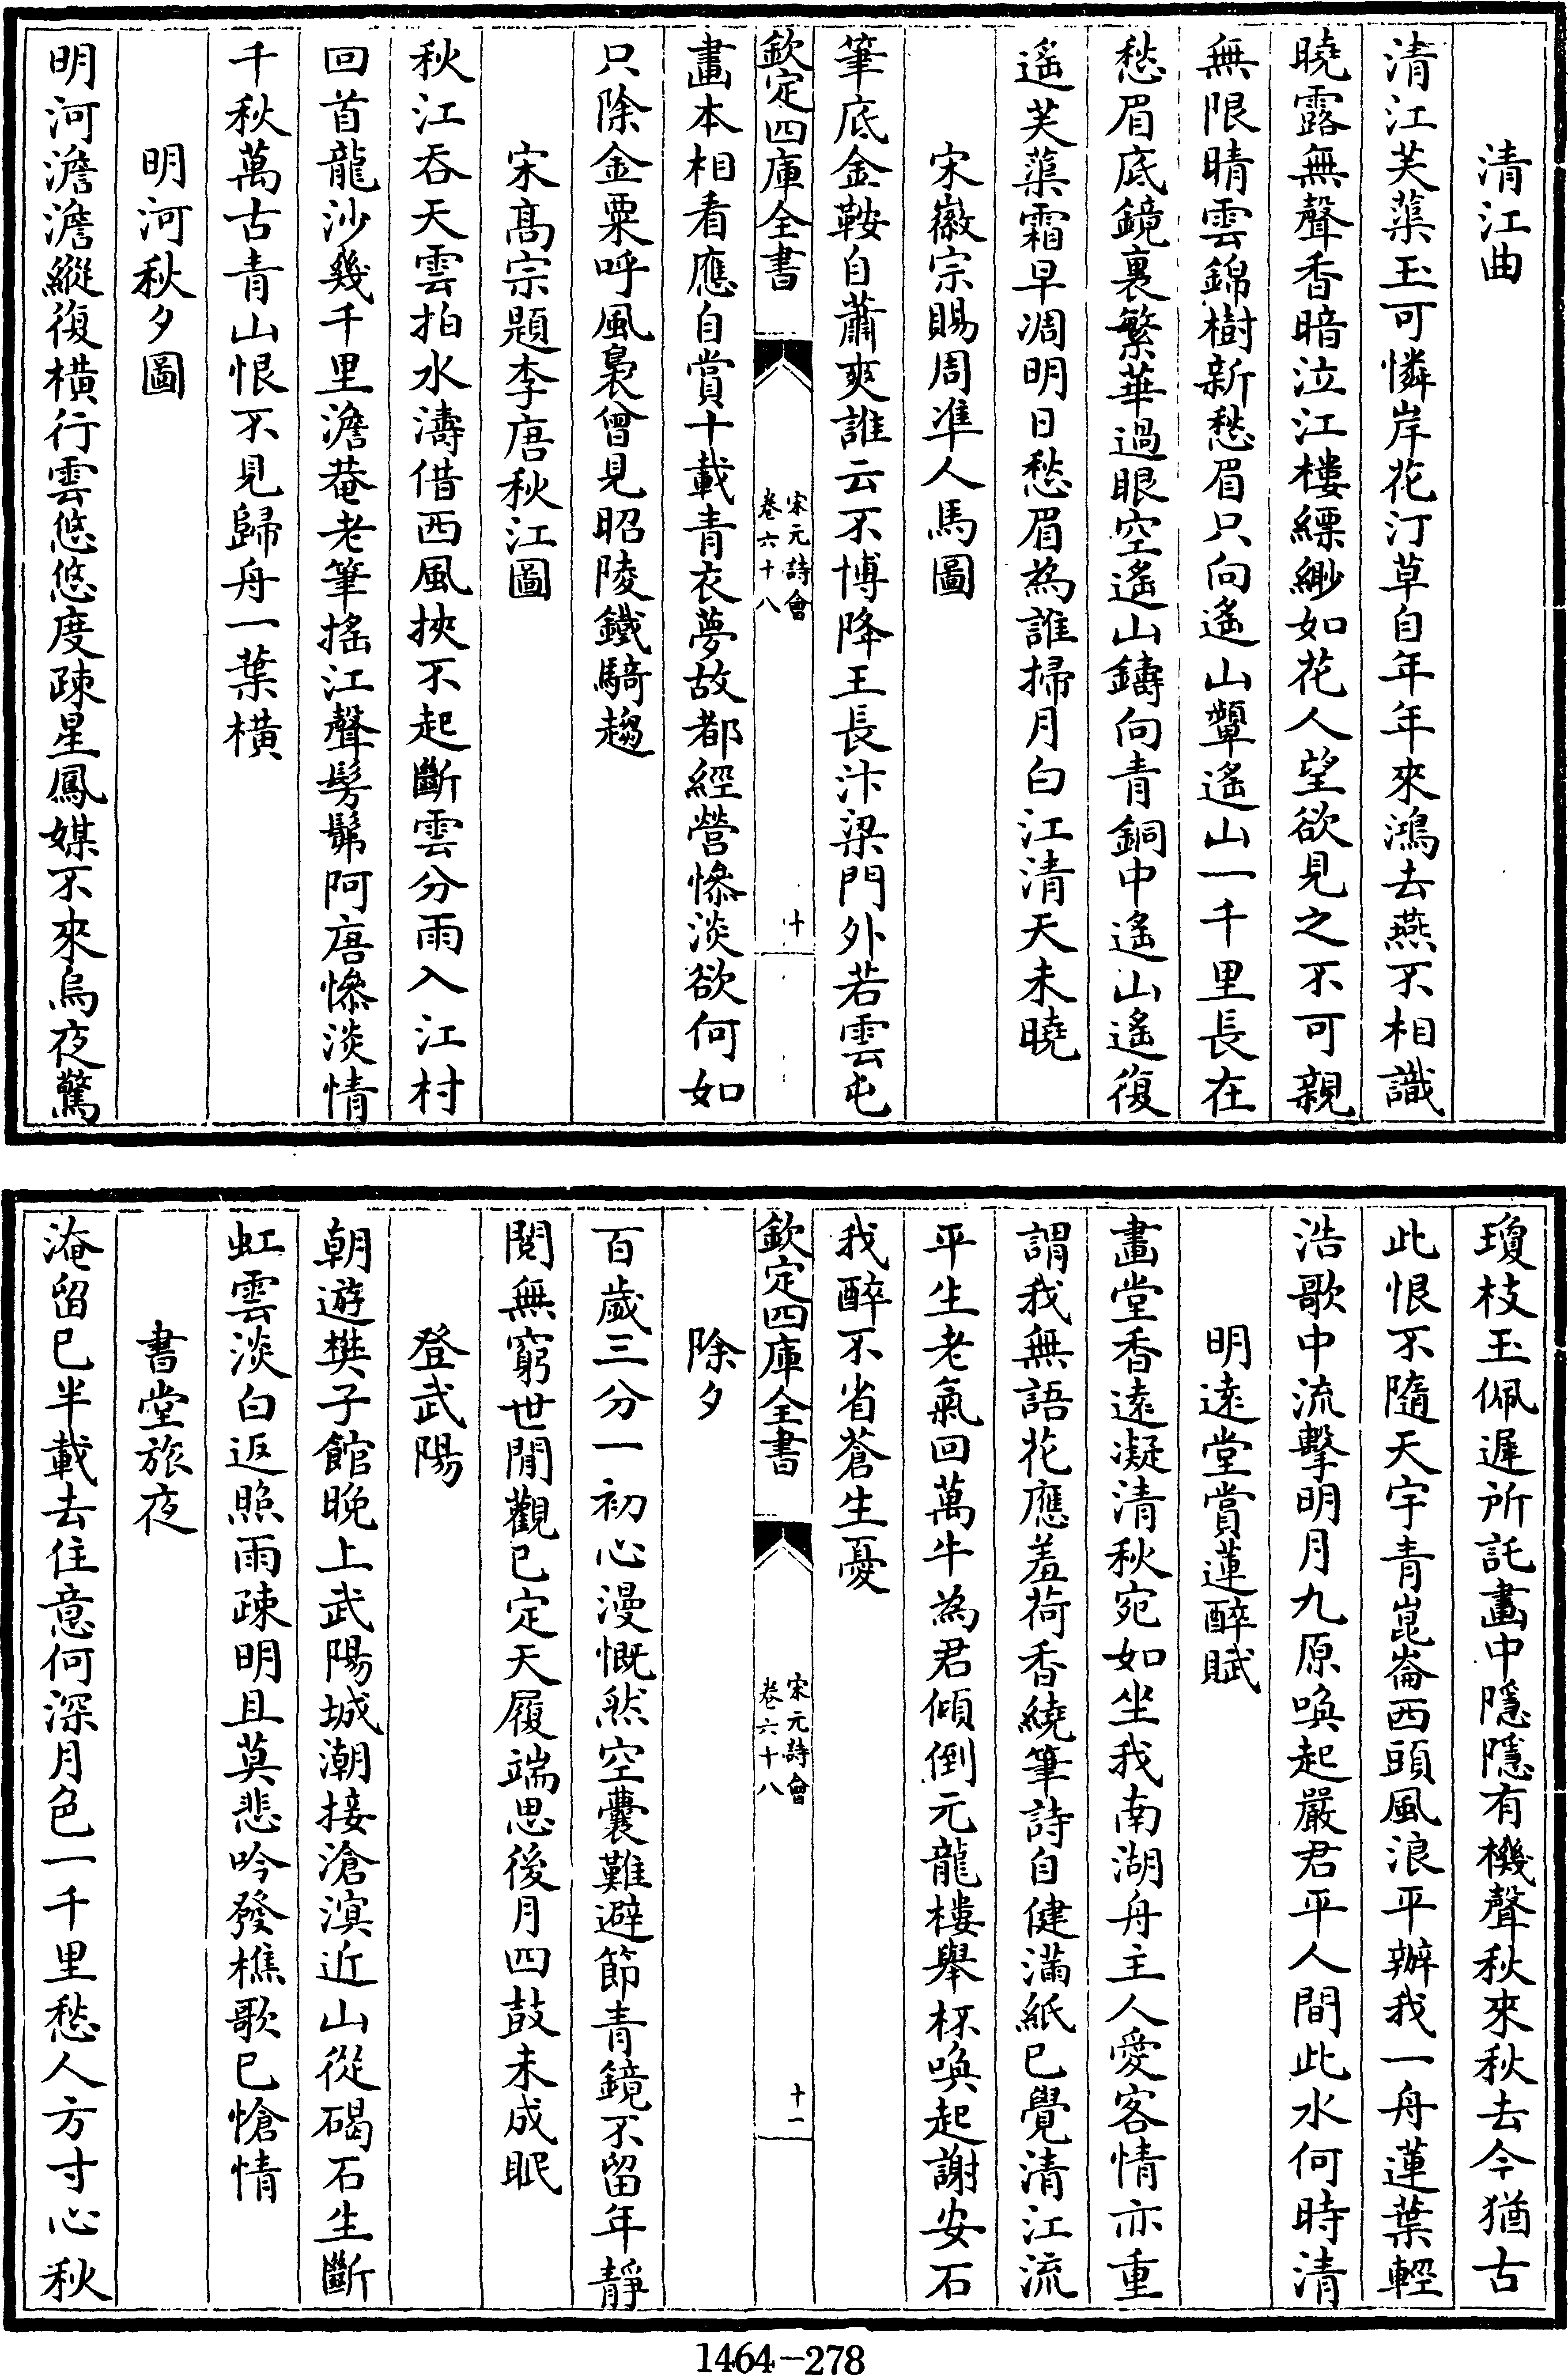 清江曲
清江芙蕖玉可憐岸花汀草自年年來鴻去燕不相識
曉露無聲香暗泣江樓縹緲如花人望欲見之不可親
無限晴雲錦樹新愁眉只向遙山顰遙山一千里長在
愁眉底鏡裏繁華過眼空遙山鑄向青銅中遙山遙復
遙芙蕖霜早凋明日愁眉為誰掃月白江清天未曉
宋徽宗賜周凖人馬圖
筆底金鞍自蕭爽誰云不博降王長汴梁門外若雲屯
欽定四庫全書
宋元詩會
卷六十八
十
畫本相看應自賞十載青衣夢故都經營慘淡欲何如
只除金粟呼風裊曾見昭陵鐵騎趨
宋髙宗題李唐秋江圖
秋江吞天雲拍水濤借西風挾不起斷雲分雨入江村
回首龍沙幾千里澹菴老筆搖江聲髣髴阿唐慘淡情
千秋萬古青山恨不見歸舟一葉橫
明河秋夕圖
明河澹澹縱復橫行雲悠悠度疎星鳳媒不來烏夜驚
瓊枝玉佩遲所託畵中隱隱有機聲秋來秋去今猶古
此恨不隨天宇青崑崙西頭風浪平辦我一舟蓮葉輕
浩歌中流擊明月九原喚起嚴君平人間此水何時清
明遠堂賞蓮醉賦
畫堂香遠凝清秋宛如坐我南湖舟主人愛客情亦重
謂我無語花應羞荷香繞筆詩自健滿紙已覺清江流
平生老氣回萬牛為君傾倒元龍樓舉杯喚起謝安石
我醉不省蒼生憂
欽定四庫全書
宋元詩會
卷六十八
十一
除夕
百歲三分一初心漫慨然空囊難避節青鏡不留年靜
閱無窮世閒觀已定天履端思後月四鼓未成眠
登武陽
朝遊樊子館晚上武陽城潮接滄溟近山從碣石生斷
虹雲淡白返照雨疎明且莫悲吟發樵歌已愴情
書堂旅夜
淹留已半載去住意何深月色一千里愁人方寸心秋
1464-278